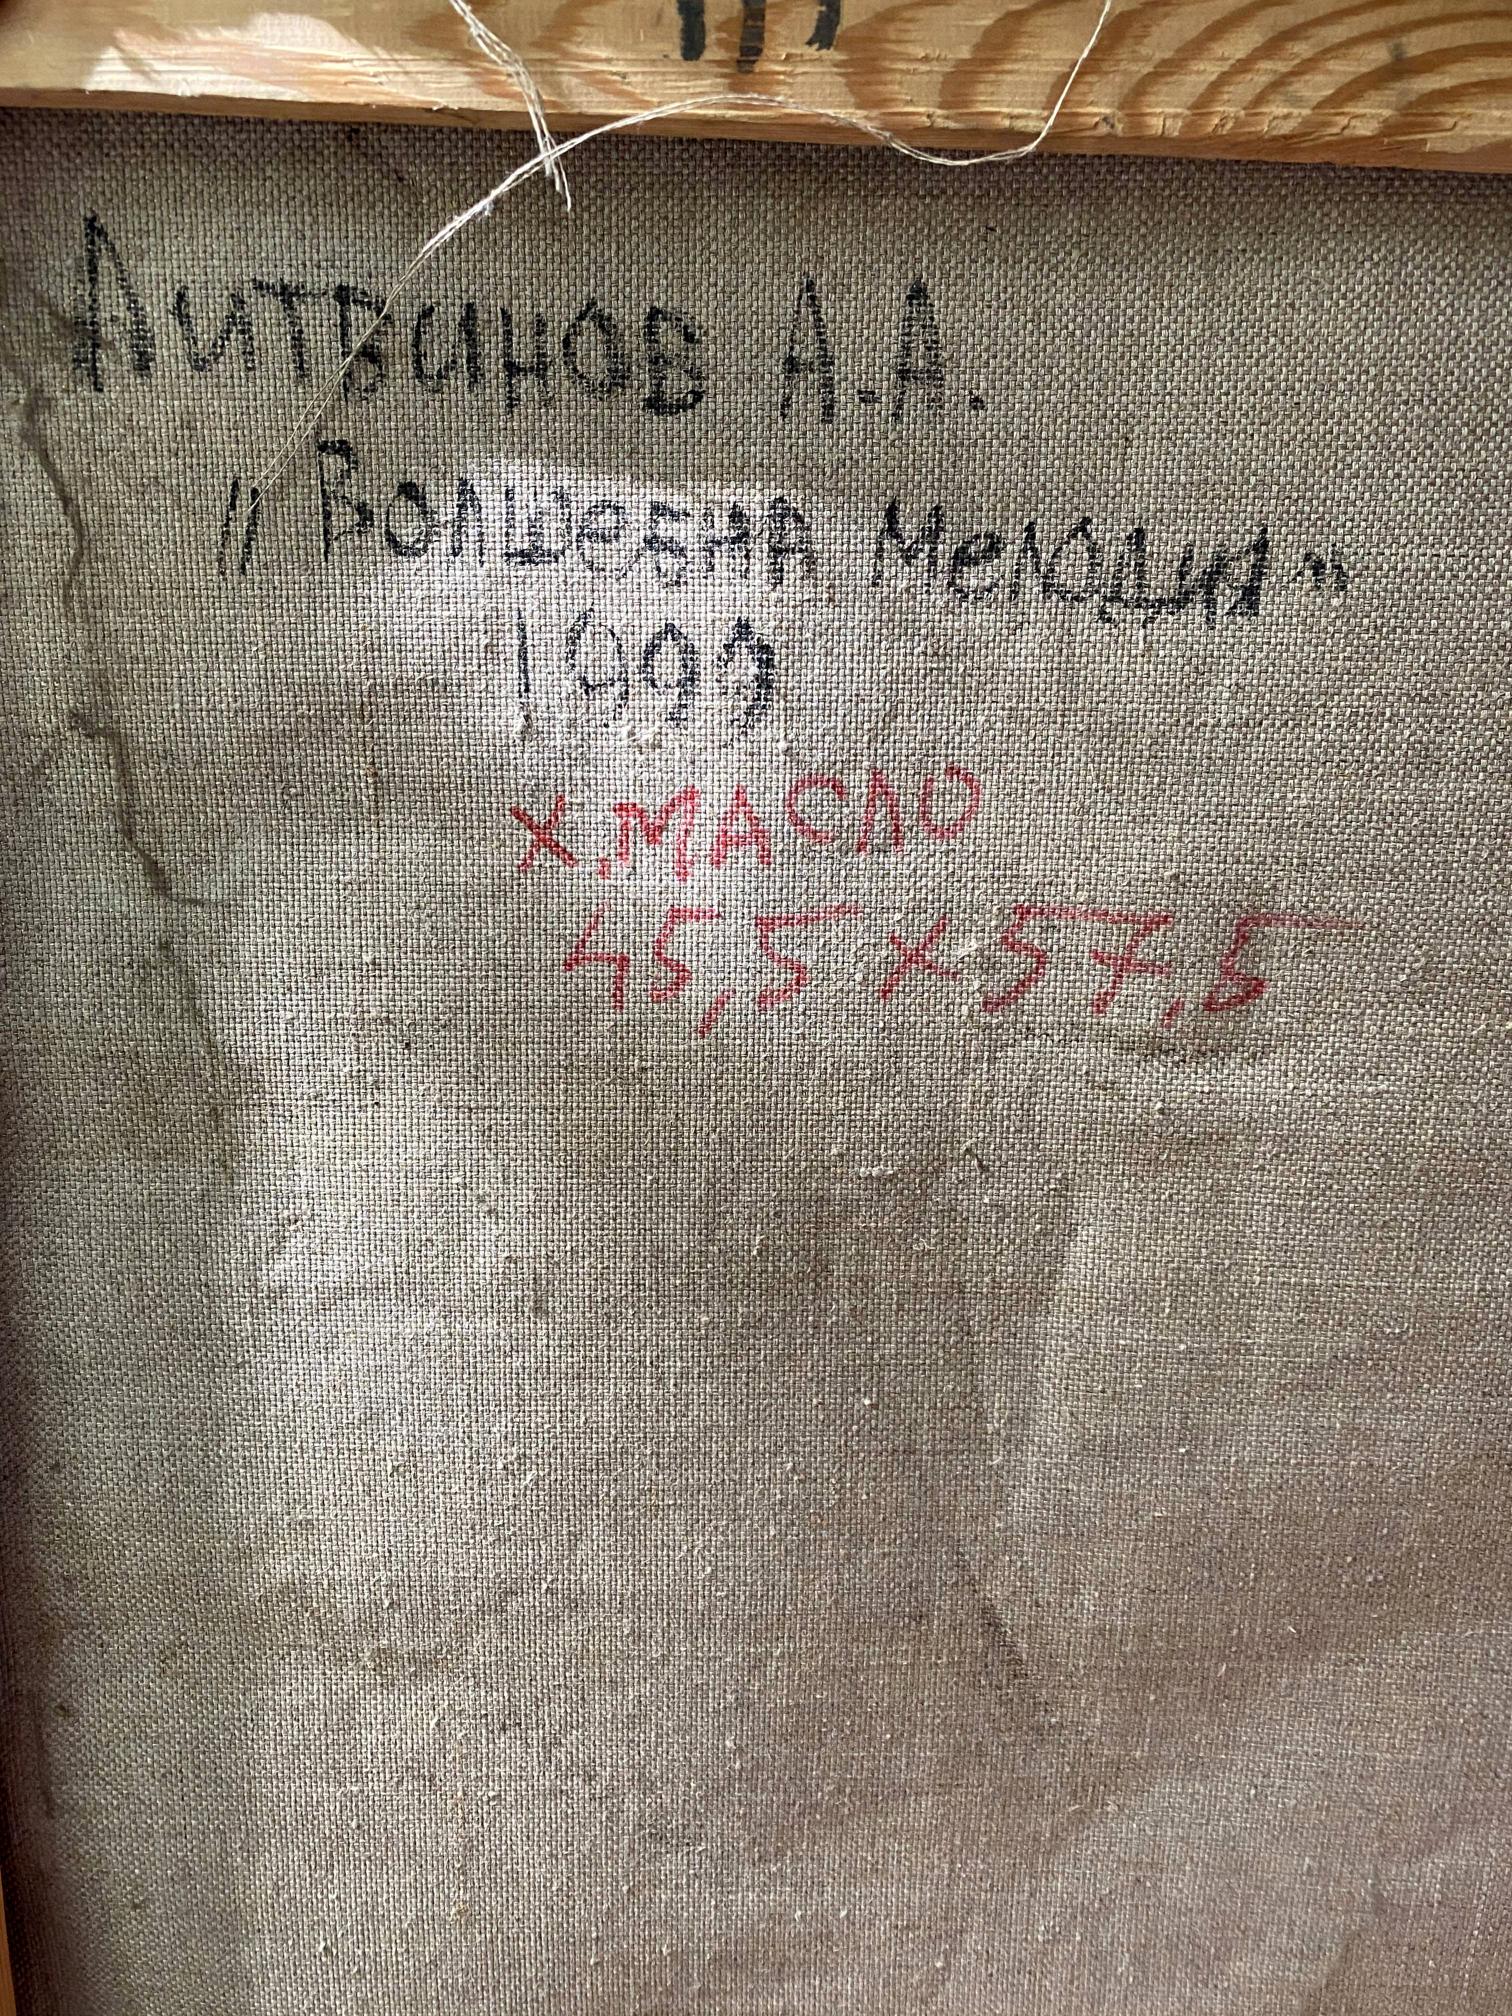 Литвинов А.А.
"Волшебна мелодия"
1999
х.масло
45,5 x 57,5